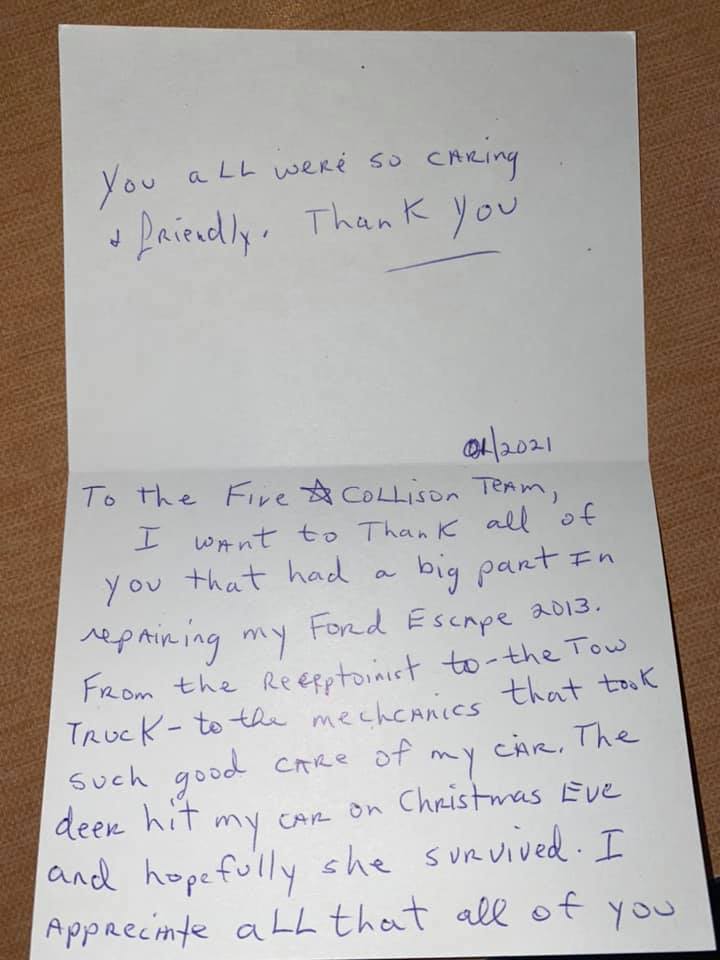 You all were so caring
& friendly. Thank you
01/2021
To the Five ☆ Collison Team,
I want to Thank all of
you that had a big part In
repairing my Ford Escape 2013.
From the Receptoinist to-the Tow
Truck-to the mechcanics that took
such good care of my car. The
deer hit my car on Christmas Eve
and hopefully she survived. I
Appreciate all that all of you